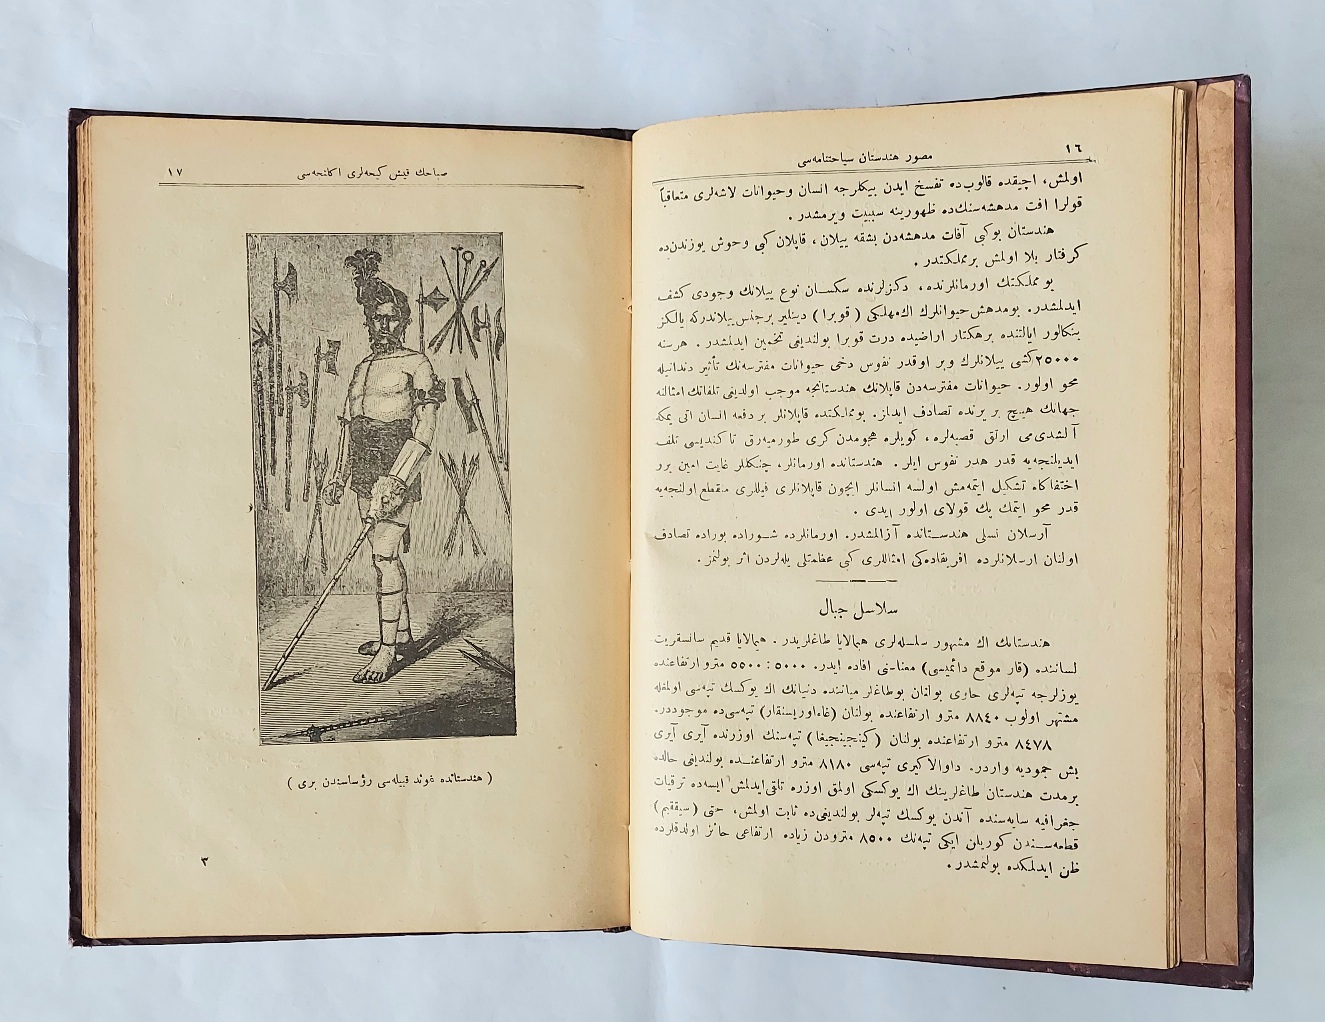 ١٦
مصور هندستان سياحتنامه‌سی
اولمش، آچيقده قالوب‌ده تفسخ ايدن بيكلرجه انسان وحيوانات لاشه‌لری متعاقباً
قولرا افت مدهشه‌سنك‌ده ظهورينه سببيت ويرمشدر .
هندستان بوكبی آفات مدهشه‌دن بشقه ييلان ، قاپلان كبی وحوش يوزندن‌ده
كرفتار بلا اولمش برمملكتدر .
بو مملكتك اورمانلرنده ، دكزلرنده سكسان نوع ييلانك وجودی كشف
ايدلمشدر. بومدهش حيوانلرك اك مهلكی ( قوبرا ) دينلير برجنس ييلاندركه يالكز
بنكالور ايالتنده برهكتار اراضيده درت قوبرا بولنديغی تخمين ايدلمشدر . هرسنه
٢٥٠٠٠كشی ييلانلرك وبر اوقدر نفوس دخی حيوانات مفترسه‌نك تأثير دندانيله
محو اولور. حيوانات مفترسه‌دن قاپلانك هندستانجه موجب اولديغی تلفاتك امثالنه
جهانك هيچ بر يرنده تصادف ايدلز. بومملكتده قاپلانلر بر دفعه انسان اتی يمكه
آلشدی‌می ارتق قصبه‌لره، كويلره هجومدن كری طورميه‌رق تا كنديسی تلف
ايديلنجه‌يه قدر هدر نفوس ايلر . هندستانده اورمانلر، جنكللر غايت امين برر
اختفاكاه تشكيل ايتمه‌مش اولسه انسانلر ايچون قاپلانلری فيللری منقطع اولنجه‌يه
قدر محو ايتمك پك قولای اولور ايدی .
آرسلان نسلی هندستانده آزالمشدر. اورمانلرده شوراده بوراده تصادف
اولنان ارسلانلرده افريقاده‌كی امثاللری كبی عظمتلی يله‌لردن اثر بولنمز.
سلاسل جبال
هندستانك اك مشهور سلسله‌لری هيمالايا طاغلريدر . هيمالايا قديم سانسقريت
لساننده (قار موقع دائميسی) معناسنی افاده ايدر. ٥٠٠٠ : ٥٥٠٠ مترو ارتفاعنده
يوزلرجه تپه‌لری حاوی بولنان بوطاغلر مياننده دنيانك اك يوكسك تپه‌سی اولمغله
مشتهر اولوب ٨٨٤٠ مترو ارتفاعنده بولنان (غاءاوريسنقار) تپه‌سی‌ده موجوددر.
٨٤٧٨ مترو ارتفاعنده بولنان (كينجينجيغا) تپه‌سنك اوزرنده آيری آيری
بش جموديه واردر. داوالاكيری تپه‌سی ٨١٨٠ مترو ارتفاعنده بولنديغی حالده
برمدت هندستان طاغلرينك اك يوكسكی اولمق اوزره تلقی ايدلمش ايسه‌ده ترقيات
جغرافيه سايه‌سنده آندن يوكسك تپه‌لر بولنديغی‌ده ثابت اولمش، حتی (سيققيم)
قطعه‌سندن كوريلن ايكی تپه‌نك ٨٥٠٠ مترودن زياده ارتفاعی حائز اولدقلرده
ظن ايدلمكده بولنمشدر .
صباحك قيش كيجه‌لری اكلنجه‌سی
١٧
( هندستانده غوند قبيله‌سی رؤساسندن بری )
٣